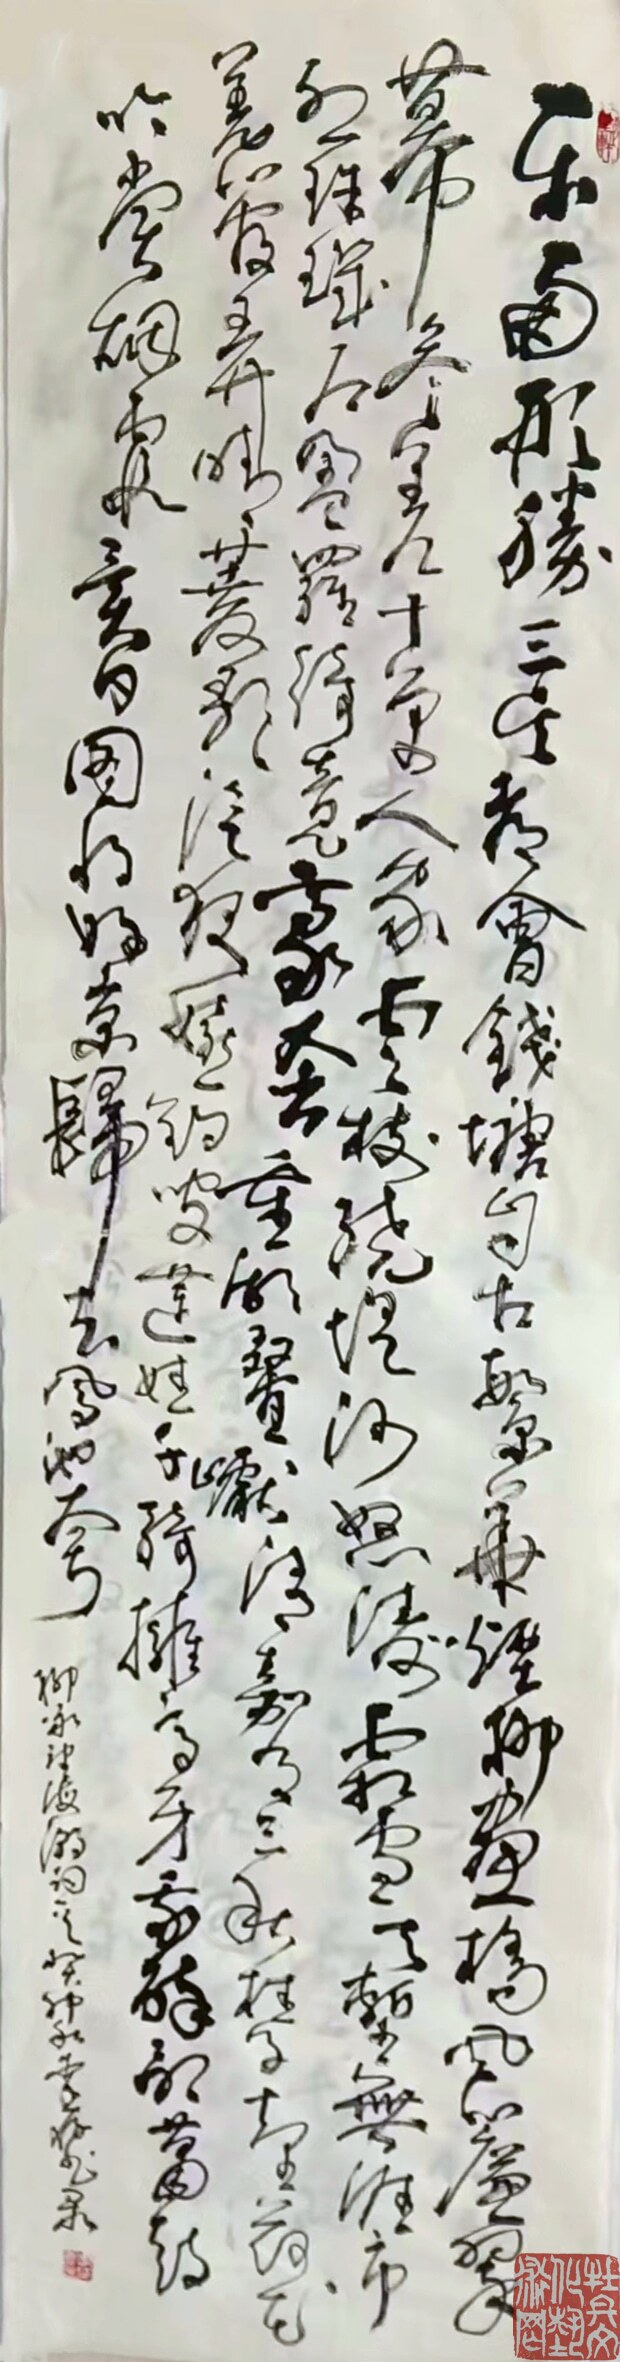 东南形勝三吴都會錢塘自古繁華煙柳畫橋風簾翠
幕参差十萬人家雲樹繞堤沙怒濤卷霜雪天塹無涯市
列珠璣户盈羅綺竞豪奢重湖叠巘清嘉有三秋桂子十里荷花
羌管弄晴菱歌泛夜嬉嬉釣叟蓮娃千騎擁高牙乘醉聽簫鼓
吟赏烟霞異日图将好景歸去鳳池夸
柳永望海潮詞癸卯